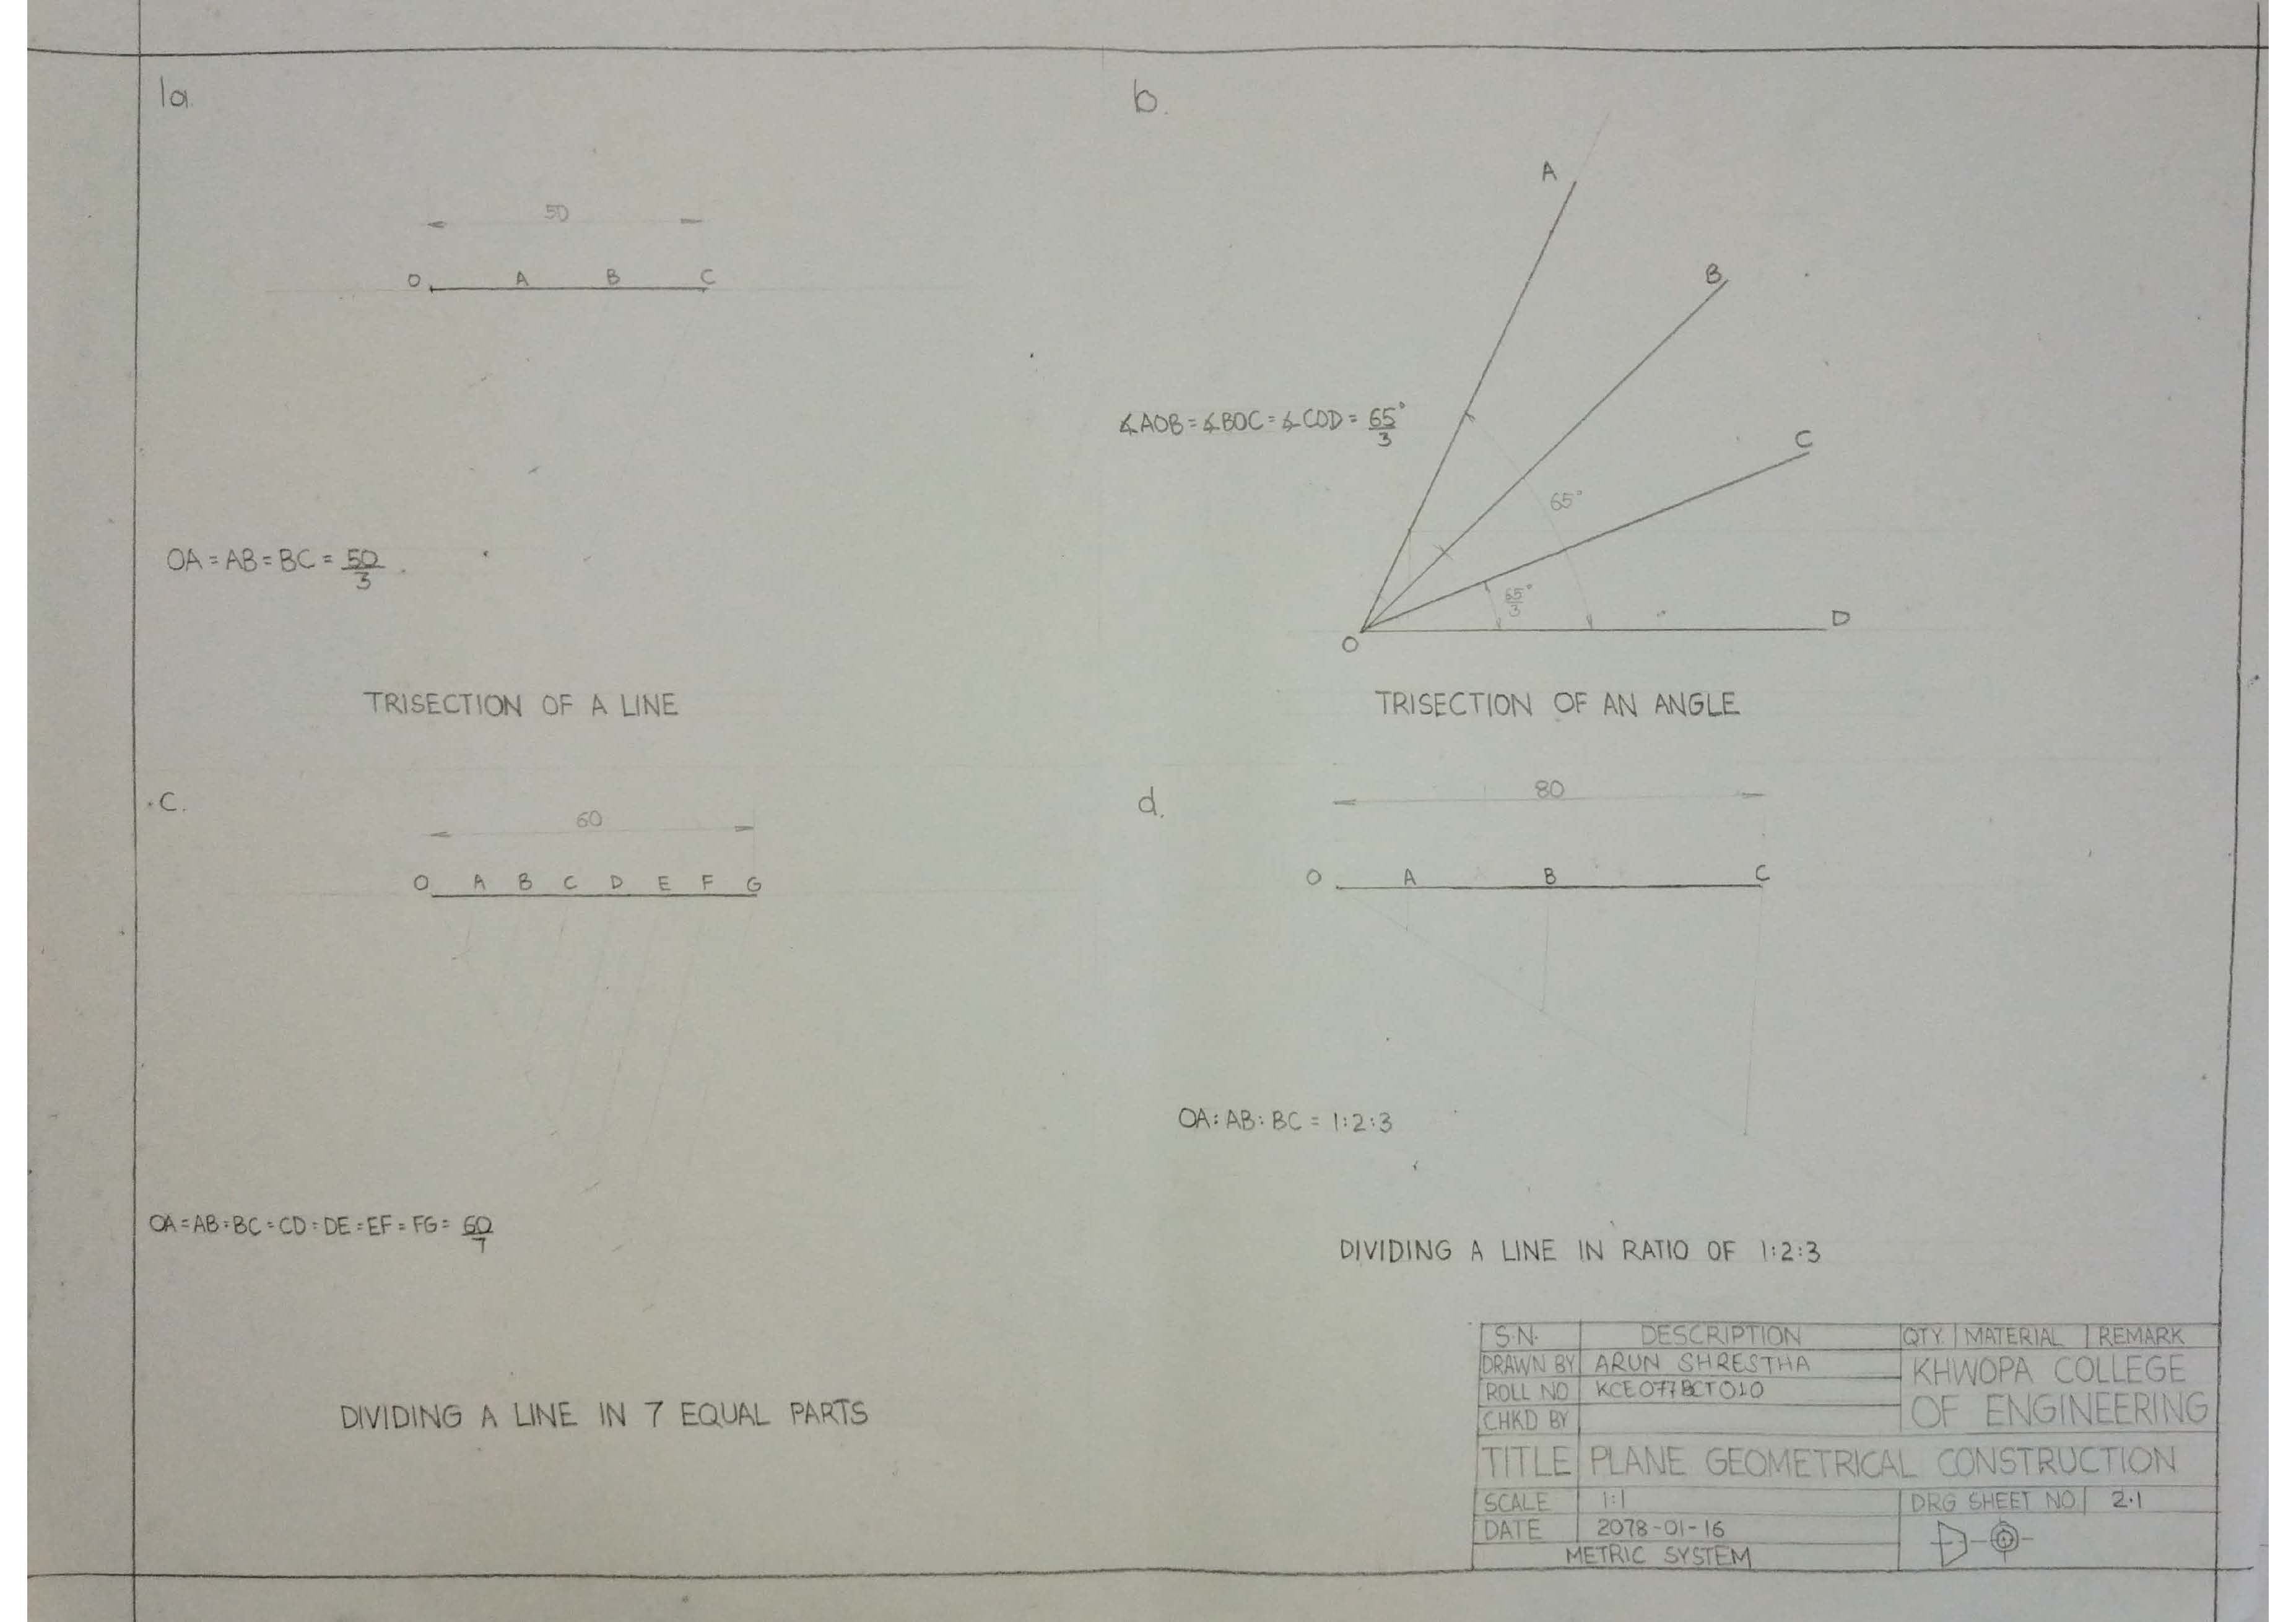 1a.
50
O A B C
OA = AB = BC = 50/3
TRISECTION OF A LINE
b.
A
B
∡AOB = ∡BOC = ∡COD = 65°/3
C
65°
65°/3
D
O
TRISECTION OF AN ANGLE
C.
60
O A B C D E F G
OA = AB = BC = CD = DE = EF = FG = 60/7
DIVIDING A LINE IN 7 EQUAL PARTS
d.
80
O A B C
OA : AB : BC = 1:2:3
DIVIDING A LINE IN RATIO OF 1:2:3
S.N. DESCRIPTION QTY. MATERIAL REMARK
DRAWN BY ARUN SHRESTHA
ROLL NO KCE077BCT010
CHKD BY
KHWOPA COLLEGE
OF ENGINEERING
TITLE PLANE GEOMETRICAL CONSTRUCTION
SCALE 1:1 DRG SHEET NO. 2.1
DATE 2078-01-16
METRIC SYSTEM